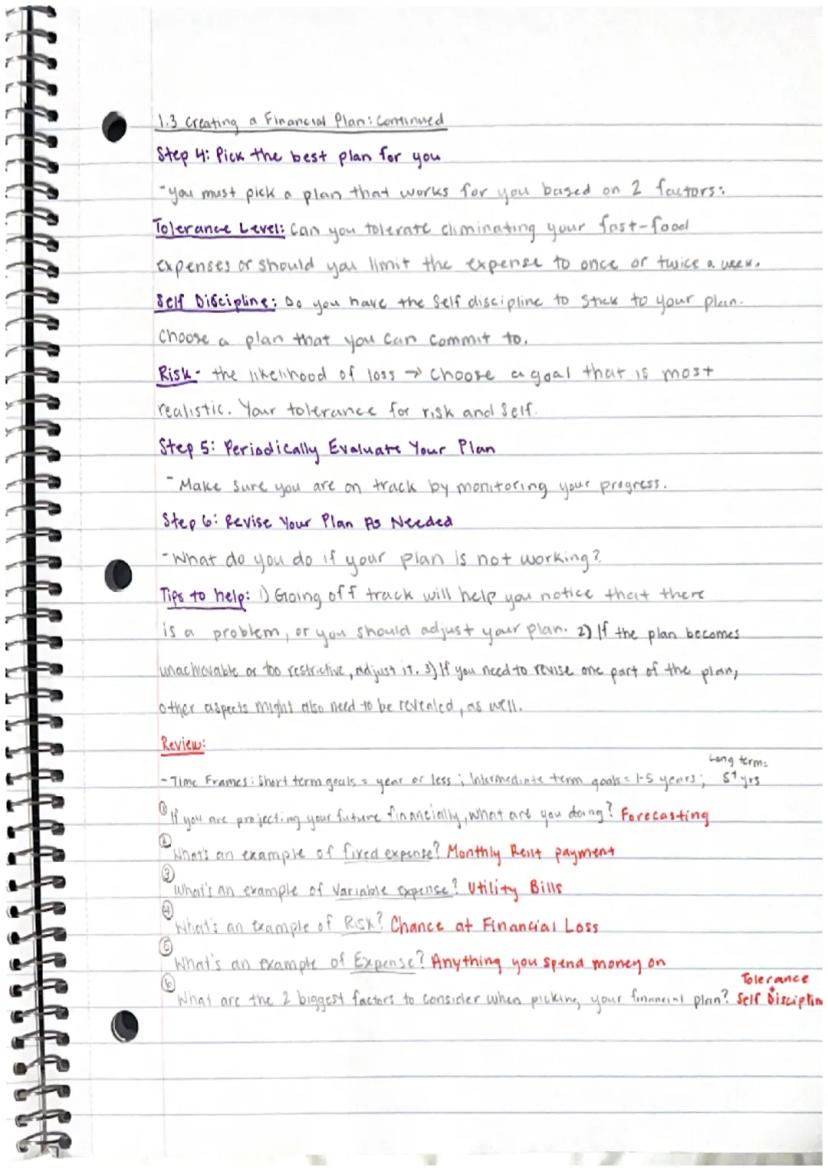 1.3 Creating a Financial Plan: Continued
Step 4: Pick the best plan for you
-you must pick a plan that works for you based on 2 factors:
Tolerance Level: Can you tolerate eliminating your fast-food
expenses or should you limit the expense to once or twice a week.
Self Discipline: Do you have the self discipline to stick to your plan.
Choose a plan that you can commit to.
Risk- the likelihood of loss → Choose a goal that is most
realistic. Your tolerance for risk and self.
Step 5: Periodically Evaluate Your Plan
-Make sure you are on track by monitoring your progress.
Step 6: Revise Your Plan As Needed
-What do you do if your plan is not working?
Tips to help: 1) Going off track will help you notice that there
is a problem, or you should adjust your plan. 2) If the plan becomes
unachievable or too restrictive, adjust it. 3) If you need to revise one part of the plan,
other aspects might also need to be revealed, as well.
Review:
-Time Frames: Short term goals = year or less; Intermediate term goals = 1-5 years; Long term: 5+ yrs
① If you are projecting your future financially, what are you doing? Forecasting
② What's an example of fixed expense? Monthly Rent payment
③ What's an example of Variable expense? Utility Bills
④ What's an example of Risk? Chance at Financial Loss
⑤ What's an example of Expense? Anything you spend money on
⑥ What are the 2 biggest factors to consider when picking your financial plan? Tolerance + Self Disciplin